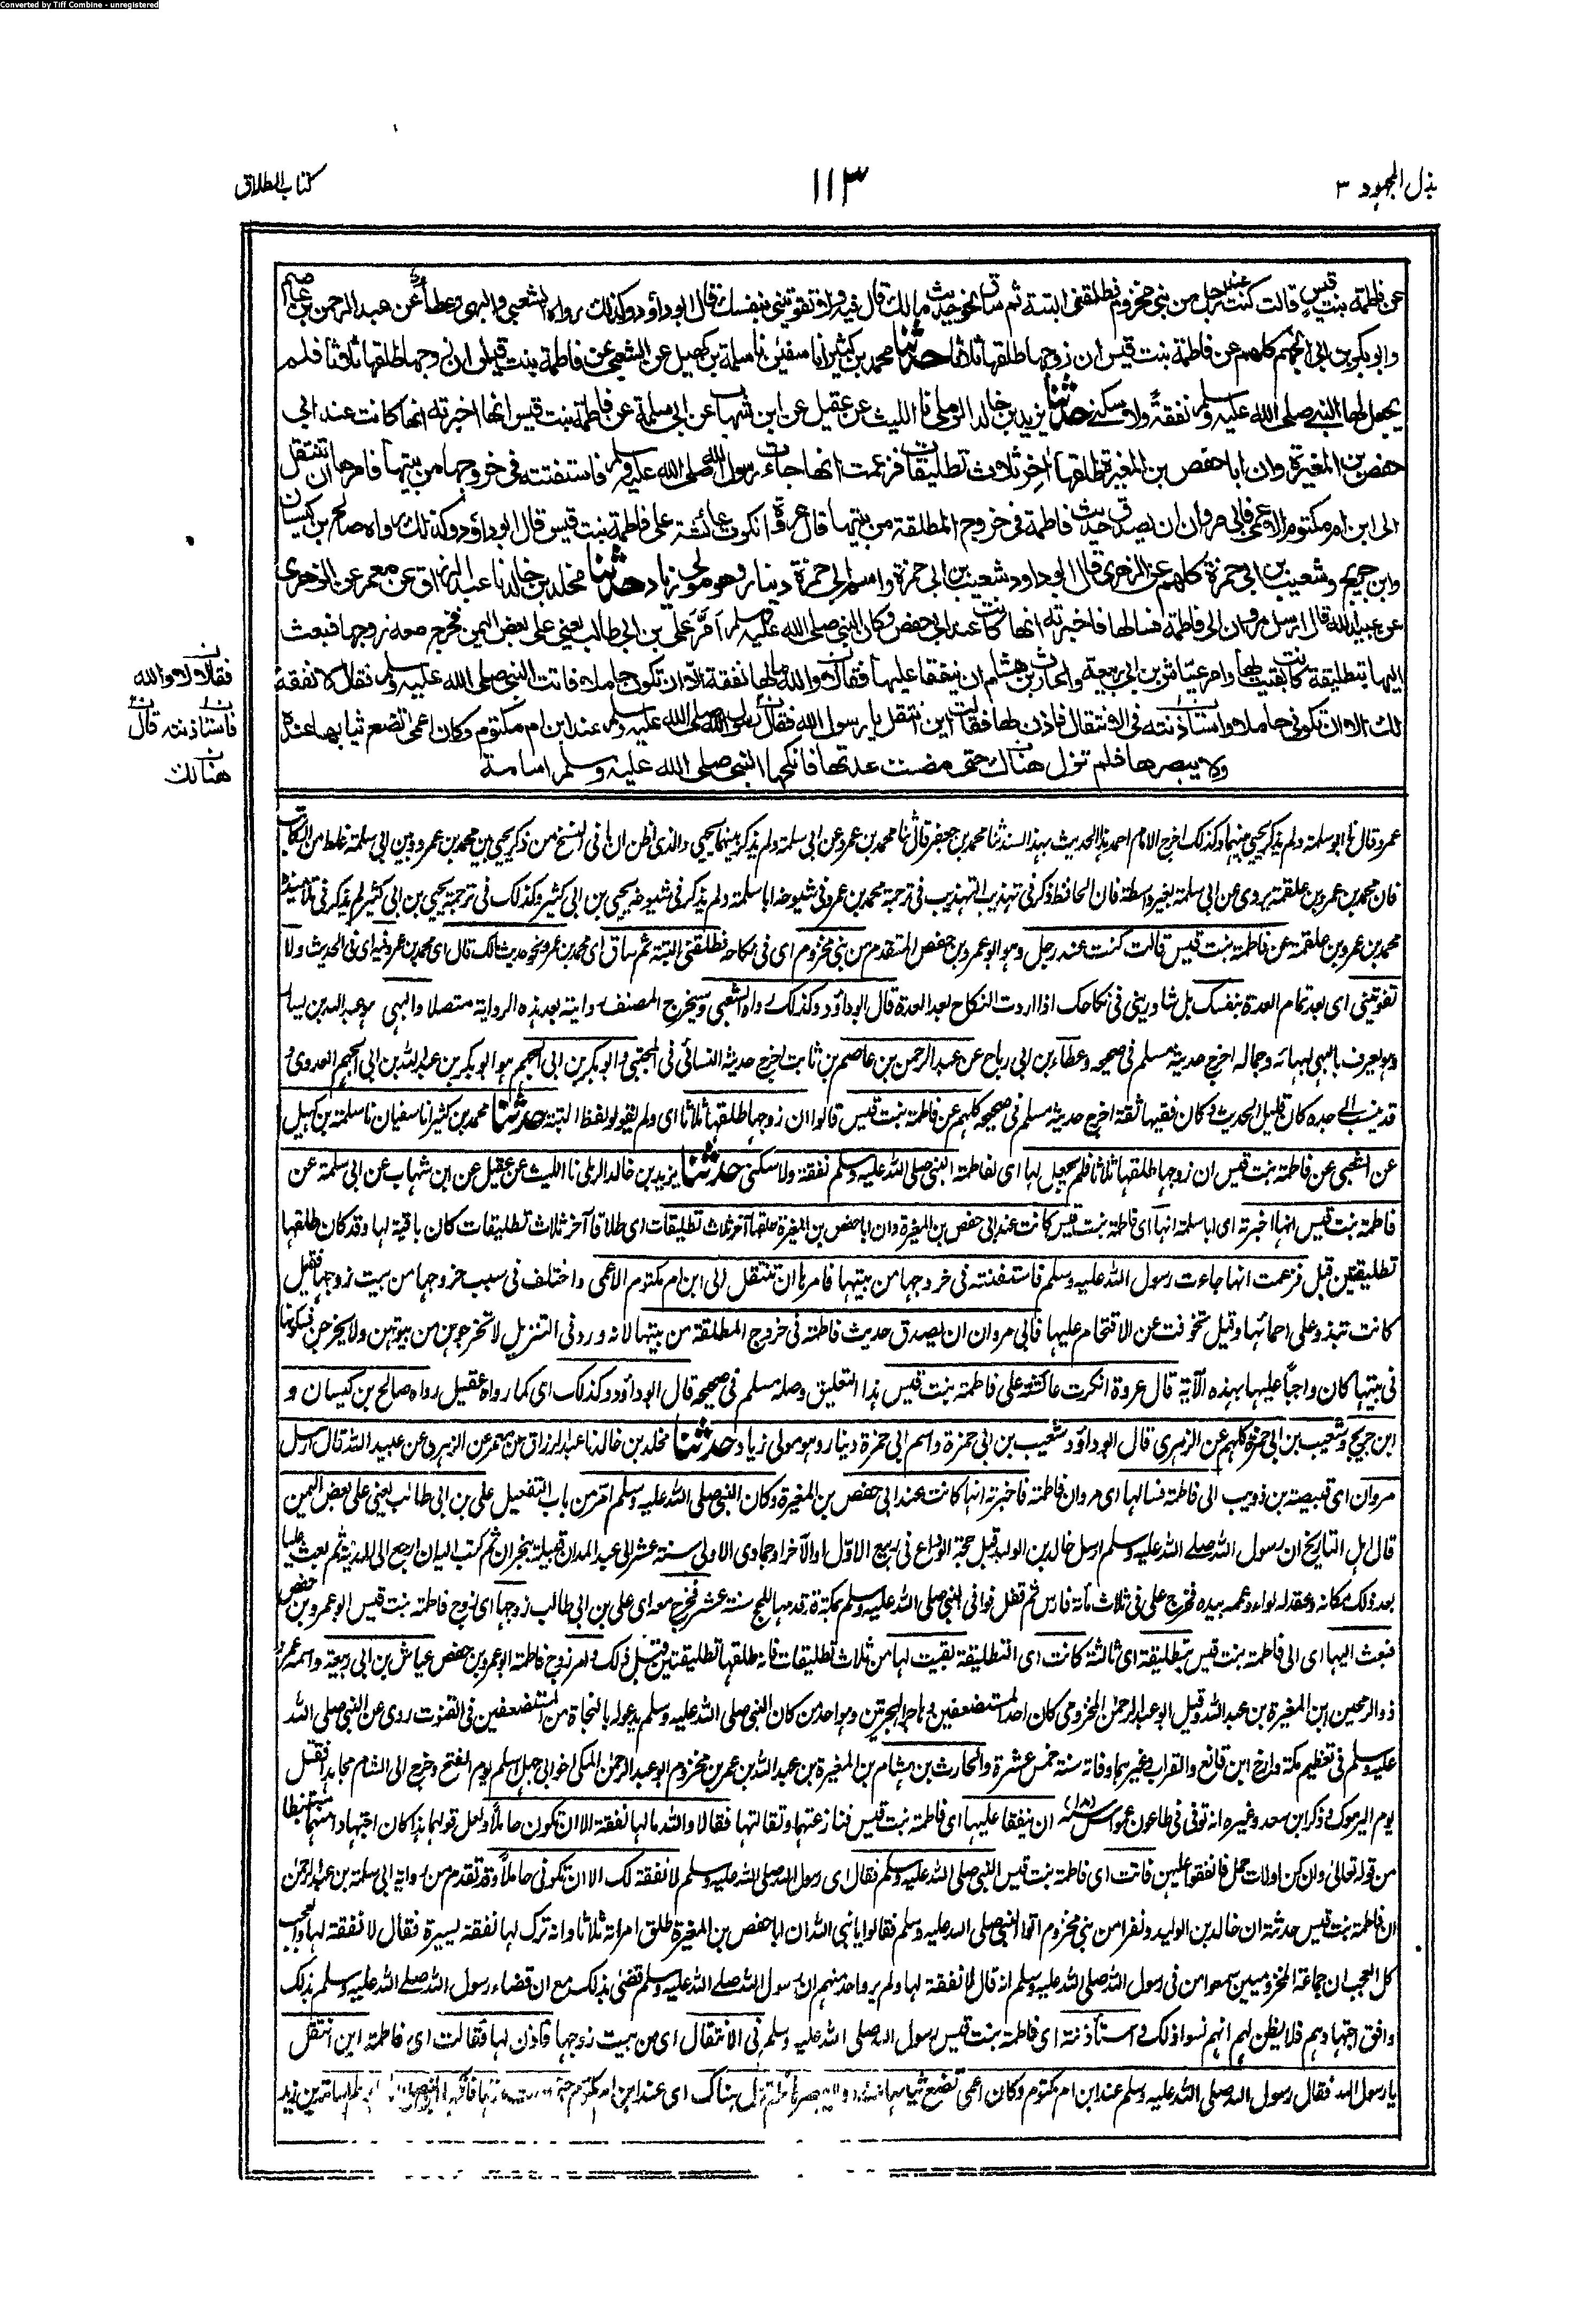 Converted by Tiff Combine - unregistered
بذل المجهود ٣
١١٣
كتاب الطلاق
عن فاطمة بنت قيس قالت كنت عند رجل من بني مخزوم فطلقني البتة ثم ساق نحو حديث مالك قال فيه ولا تفوتيني بنفسك قال ابو داؤد وكذلك رواه الشعبي والبهي وعطاء عن عبد الرحمن بن عاصم
وابو بكر بن ابي الجهم كلهم عن فاطمة بنت قيس ان زوجها طلقها ثلاثا حدثنا محمد بن كثير انا سفين نا سلمة بن كهيل عن الشعبي عن فاطمة بنت قيس ان زوجها طلقها ثلاثا فلم
يجعل لها النبي صلى الله عليه وسلم نفقة ولا سكنى حدثنا يزيد بن خالد الرملي نا الليث عن عقيل عن ابن شهاب عن ابي سلمة عن فاطمة بنت قيس انها اخبرته انها كانت عند ابي
حفص بن المغيرة وان ابا حفص بن المغيرة طلقها آخر ثلاث تطليقات فزعمت انها جاءت رسول الله صلى الله عليه وسلم فاستفتته في خروجها من بيتها فامرها ان تنتقل
الى ابن ام مكتوم الاعمى فابى مروان ان يصدق حديث فاطمة في خروج المطلقة من بيتها قال عروة انكرت عائشة على فاطمة بنت قيس قال ابو داؤد وكذلك رواه صالح بن كيسان
وابن جريج وشعيب بن ابي حمزة كلهم عن الزهري قال ابو داود شعيب بن ابي حمزة واسم ابي حمزة دينار وهو مولى زياد حدثنا مخلد بن خالد نا عبد الرزاق عن معمر عن الزهري
عن عبيد الله قال ارسل مروان الى فاطمة فسالها فاخبرته انها كانت عند ابي حفص وكان النبي صلى الله عليه وسلم امر علي بن ابي طالب يعني على بعض اليمن فخرج معه زوجها فبعث
اليها بتطليقة كانت بقيت لها وامر عياش بن ابي ربيعة والحارث بن هشام ان ينفقا عليها فقالا والله ما لها نفقة الا ان تكون حاملا فاتت النبي صلى الله عليه وسلم فقال لا نفقة
لك الا ان تكوني حاملا واستأذنته في الانتقال فاذن لها فقالت اين انتقل يا رسول الله فقال رسول الله صلى الله عليه وسلم عند ابن ام مكتوم وكان اعمى تضع ثيابها عنده
ولا يبصرها فلم تزل هناك حتى مضت عدتها فانكحها النبي صلى الله عليه وسلم اسامة
ن
فقالا لا والله
ن
فاستاذنته قال
ن
هنالك
عمرو قال نا ابو سلمة ولم يذكر يحيى بينهما وكذلك اخرج الامام احمد هذا الحديث بهذا السند ثنا محمد بن جعفر قال ثنا محمد بن عمرو عن ابي سلمة ولم يذكر بينهما يحيى والذي اظن ان ما في النسخ من ذكر يحيى بين محمد بن عمرو وبين ابي سلمة غلط من الكاتب
فان محمد بن عمرو بن علقمة يروي عن ابي سلمة بغير واسطة فان الحافظ ذكر في تهذيب التهذيب في ترجمة محمد بن عمرو في شيوخه ابا سلمة ولم يذكر في شيوخه يحيى بن ابي كثير وكذلك في ترجمة يحيى بن ابي كثير لم يذكر في تلامذته
محمد بن عمرو بن علقمة عن فاطمة بنت قيس قالت كنت عند رجل وهو ابو عمرو بن حفص المتقدم من بني مخزوم اي في نكاحه فطلقني البتة ثم ساق اي محمد بن عمرو نحو حديث مالك قال اي محمد بن عمرو فيه اي في الحديث ولا
تفوتيني اي بعد تمام العدة بنفسك بل شاوريني في نكاحك اذا اردت النكاح بعد العدة قال ابو داؤد وكذلك رواه الشعبي وسيخرج المصنف روايته بعد هذه الرواية متصلا والبهي هو عبد الله بن يسار
وهو يعرف بالبهي لبهائه وجماله اخرج حديثه مسلم في صحيحه وعطاء بن ابي رباح عن عبد الرحمن بن عاصم بن ثابت اخرج حديثه النسائي في المجتبى وابو بكر بن ابي الجهم هو ابو بكر بن عبد الله بن ابي الجهم العدوي و
قد ينسب الى جده كان قليل الحديث وكان فقيها ثقة اخرج حديثه مسلم في صحيحه كلهم عن فاطمة بنت قيس قالوا ان زوجها طلقها ثلاثا اي ولم يقولوا لفظ البتة حدثنا محمد بن كثير انا سفيان نا سلمة بن كهيل
عن الشعبي عن فاطمة بنت قيس ان زوجها طلقها ثلاثا فلم يجعل لها اي لفاطمة النبي صلى الله عليه وسلم نفقة ولا سكنى حدثنا يزيد بن خالد الرملي نا الليث عن عقيل عن ابن شهاب عن ابي سلمة عن
فاطمة بنت قيس انها اخبرته اي ابا سلمة انها اي فاطمة بنت قيس كانت عند ابي حفص بن المغيرة وان ابا حفص بن المغيرة طلقها آخر ثلاث تطليقات اي طلاقا آخر ثلاث تطليقات كان باقية لها وقد كان طلقها
تطليقتين قبل فزعمت انها جاءت رسول الله عليه وسلم فاستفتته في خروجها من بيتها فامرها ان تنتقل الى ابن ام مكتوم الاعمى واختلف في سبب خروجها من بيت زوجها فقيل
كانت تبذو على احمائها وقيل تخوفت عن الاقتحام عليها فابى مروان ان يصدق حديث فاطمة في خروج المطلقة من بيتها لانه ورد في التنزيل لا تخرجوهن من بيوتهن ولا يخرجن فسكونها
في بيتها كان واجبا عليها بهذه الآية قال عروة انكرت عائشة على فاطمة بنت قيس هذا التعليق وصله مسلم في صحيحه قال ابو داؤد وكذلك اي كما رواه عقيل رواه صالح بن كيسان و
ابن جريج وشعيب بن ابي حمزة كلهم عن الزهري قال ابو داؤد شعيب بن ابي حمزة واسم ابي حمزة دينار وهو مولى زياد حدثنا مخلد بن خالد نا عبد الرزاق عن معمر عن الزهري عن عبيد الله قال ارسل
مروان اي قبيصة بن ذويب الى فاطمة فسالها اي مروان فاطمة فاخبرته انها كانت عند ابي حفص بن المغيرة وكان النبي صلى الله عليه وسلم امر من باب التفعيل علي بن ابي طالب يعني على بعض اليمن
قال اهل التاريخ ان رسول الله صلى الله عليه وسلم ارسل خالد بن الوليد قبل حجة الوداع في ربيع الاول او الآخر او جمادى الاولى سنة عشر الى عبد المدان قبيلة بنجران ثم كتب اليه ان ارجع الى المدينة ثم بعث عليا
بعد ذلك مكانه وعقد له لواء وعممه بيده فخرج علي في ثلاث مائة فارس ثم قفل فوافى النبي صلى الله عليه وسلم بمكة قد قدمها للحج سنة عشر فخرج معه اي علي بن ابي طالب زوجها اي زوج فاطمة بنت قيس ابو عمرو بن حفص
فبعث اليها اي الى فاطمة بنت قيس بتطليقة اي ثالثة كانت اي التطليقة بقيت لها من ثلاث تطليقات فانه طلقها تطليقتين قبل ذلك وامر زوج فاطمة ابو عمرو بن حفص عياش بن ابي ربيعة واسمه عمرو
ذو الرمحين ابن المغيرة بن عبد الله وقيل ابو عبد الرحمن المخزومي كان احد المستضعفين هاجر الهجرتين وهو احد من كان النبي صلى الله عليه وسلم يدعو له بالنجاة من المستضعفين في القنوت روى عن النبي صلى الله
عليه وسلم في تعظيم مكة وارخ ابن قانع والقراب وغيرهما وفاته سنة خمس عشرة والحارث بن هشام بن المغيرة بن عبد الله بن عمر بن مخزوم ابو عبد الرحمن المكي اخو ابي جهل اسلم يوم الفتح وخرج الى الشام مجاهدا فقتل
يوم اليرموك وذكر ابن سعد وغيره انه توفي في طاعون عمواس ان ينفقا عليها اي فاطمة بنت قيس فنازعتهما وتقالتها فقالا والله ما لها نفقة الا ان تكون حاملا ولعل قولهما هذا كان اجتهادا منهما مستنبطا
من قوله تعالى وان كن اولات حمل فانفقوا عليهن فاتت اي فاطمة بنت قيس النبي صلى الله عليه وسلم فقال اي رسول الله صلى الله عليه وسلم لا نفقة لك الا ان تكوني حاملا وقد تقدم من رواية ابي سلمة بن عبد الرحمن
ان فاطمة بنت قيس حدثته ان خالد بن الوليد ونفرا من بني مخزوم اتوا النبي صلى الله عليه وسلم فقالوا يا نبي الله ان ابا حفص بن المغيرة طلق امراته ثلاثا وانه ترك لها نفقة يسيرة فقال لا نفقة لها والعجب
كل العجب ان جماعة المخزوميين سمعوا من في رسول الله صلى الله عليه وسلم انه قال لا نفقة لها ولم يرو احد منهم ان رسول الله صلى الله عليه وسلم قضى بذلك مع ان قضاء رسول الله صلى الله عليه وسلم بذلك
وافق اجتهادهم فلا يظن بهم انهم نسوا ذلك واستأذنته اي فاطمة بنت قيس رسول الله صلى الله عليه وسلم في الانتقال اي من بيت زوجها فاذن لها فقالت اي فاطمة اين انتقل
يا رسول الله فقال رسول الله صلى الله عليه وسلم عند ابن ام مكتوم وكان اعمى تضع ثيابها عنده ولا يبصرها فلم تزل هناك اي عند ابن ام مكتوم اسامة بن زيد